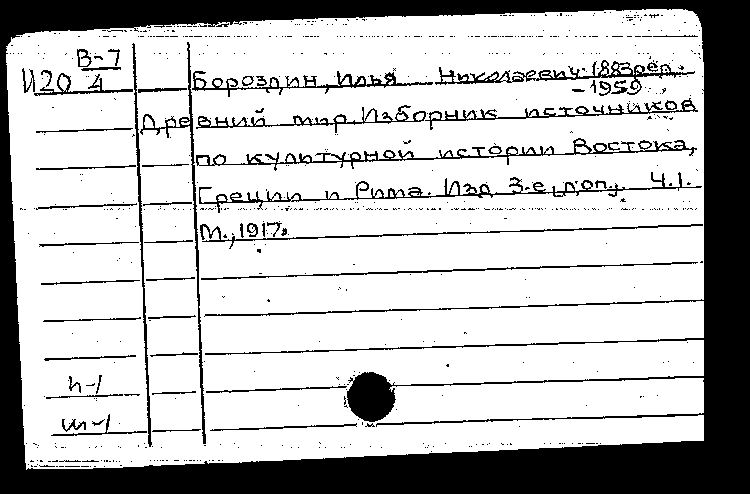 В-7
И20 4
Бороздин, Илья Николаевич. 1883 ред.
-1959
Древний мир. Изборник источников
по культурной истории Востока,
Греции и Рима. Изд. 3-е, доп. Ч.1.
М., 1917.
п-1
ш-1